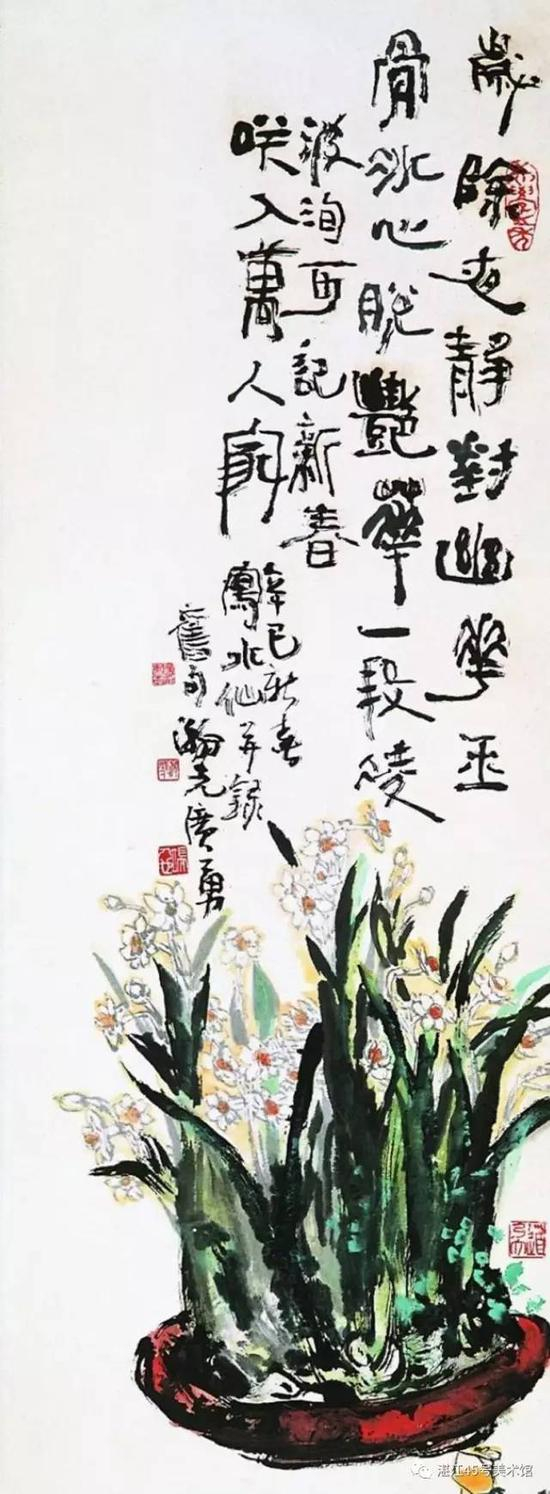 歲除夜靜對幽花玉
骨冰心脫艷華一段凌
波洵可記新春
咲入萬人家
辛巳新春
寫水仙并錄
舊句瀚元廣勇
湛江45号美术馆